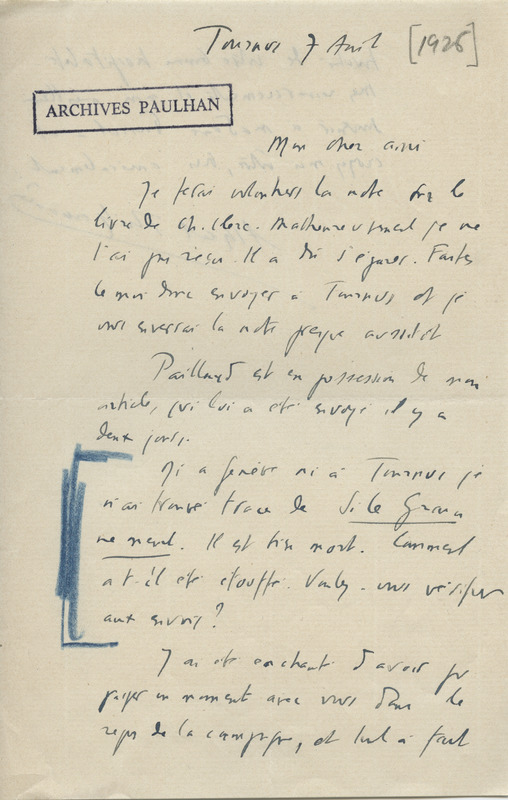 Tournus 7 Avril [1926]
ARCHIVES PAULHAN
Mon cher ami
Je ferai volontiers la note sur le
livre de Ch. Clerc. Malheureusement je ne
l'ai pas reçu. Il a dû s'égarer. Faites
le moi donc envoyer à Tournus et je
vous enverrai la note presque aussitôt
Pailhard est en possession de mon
article, qui lui a été envoyé il y a
deux jours.
Ni a Genève ni à Tournus je
n'ai trouvé trace de Si le Grain
ne meurt. Il est bien mort. Comment
a t-il été étouffé. Voulez-vous vérifier
aux envois?
J'ai été enchanté d'avoir pu
passer un moment avec vous dans le
repos de la campagne, et tout à fait